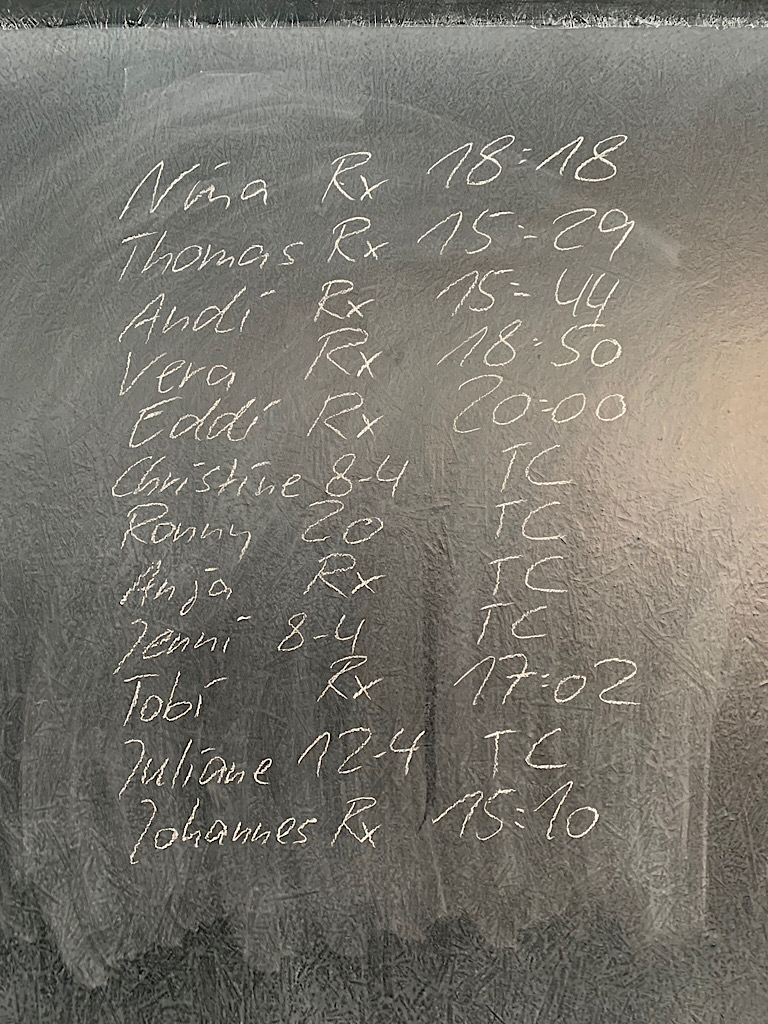 Nina Rx 18:18
Thomas Rx 15:29
Andi Rx 15:44
Vera Rx 18:50
Eddi Rx 20:00
Christine 8-4 TC
Ronny 20 TC
Anja Rx TC
Jenni 8-4 TC
Tobi Rx 17:02
Juliane 12-4 TC
Johannes Rx 15:10